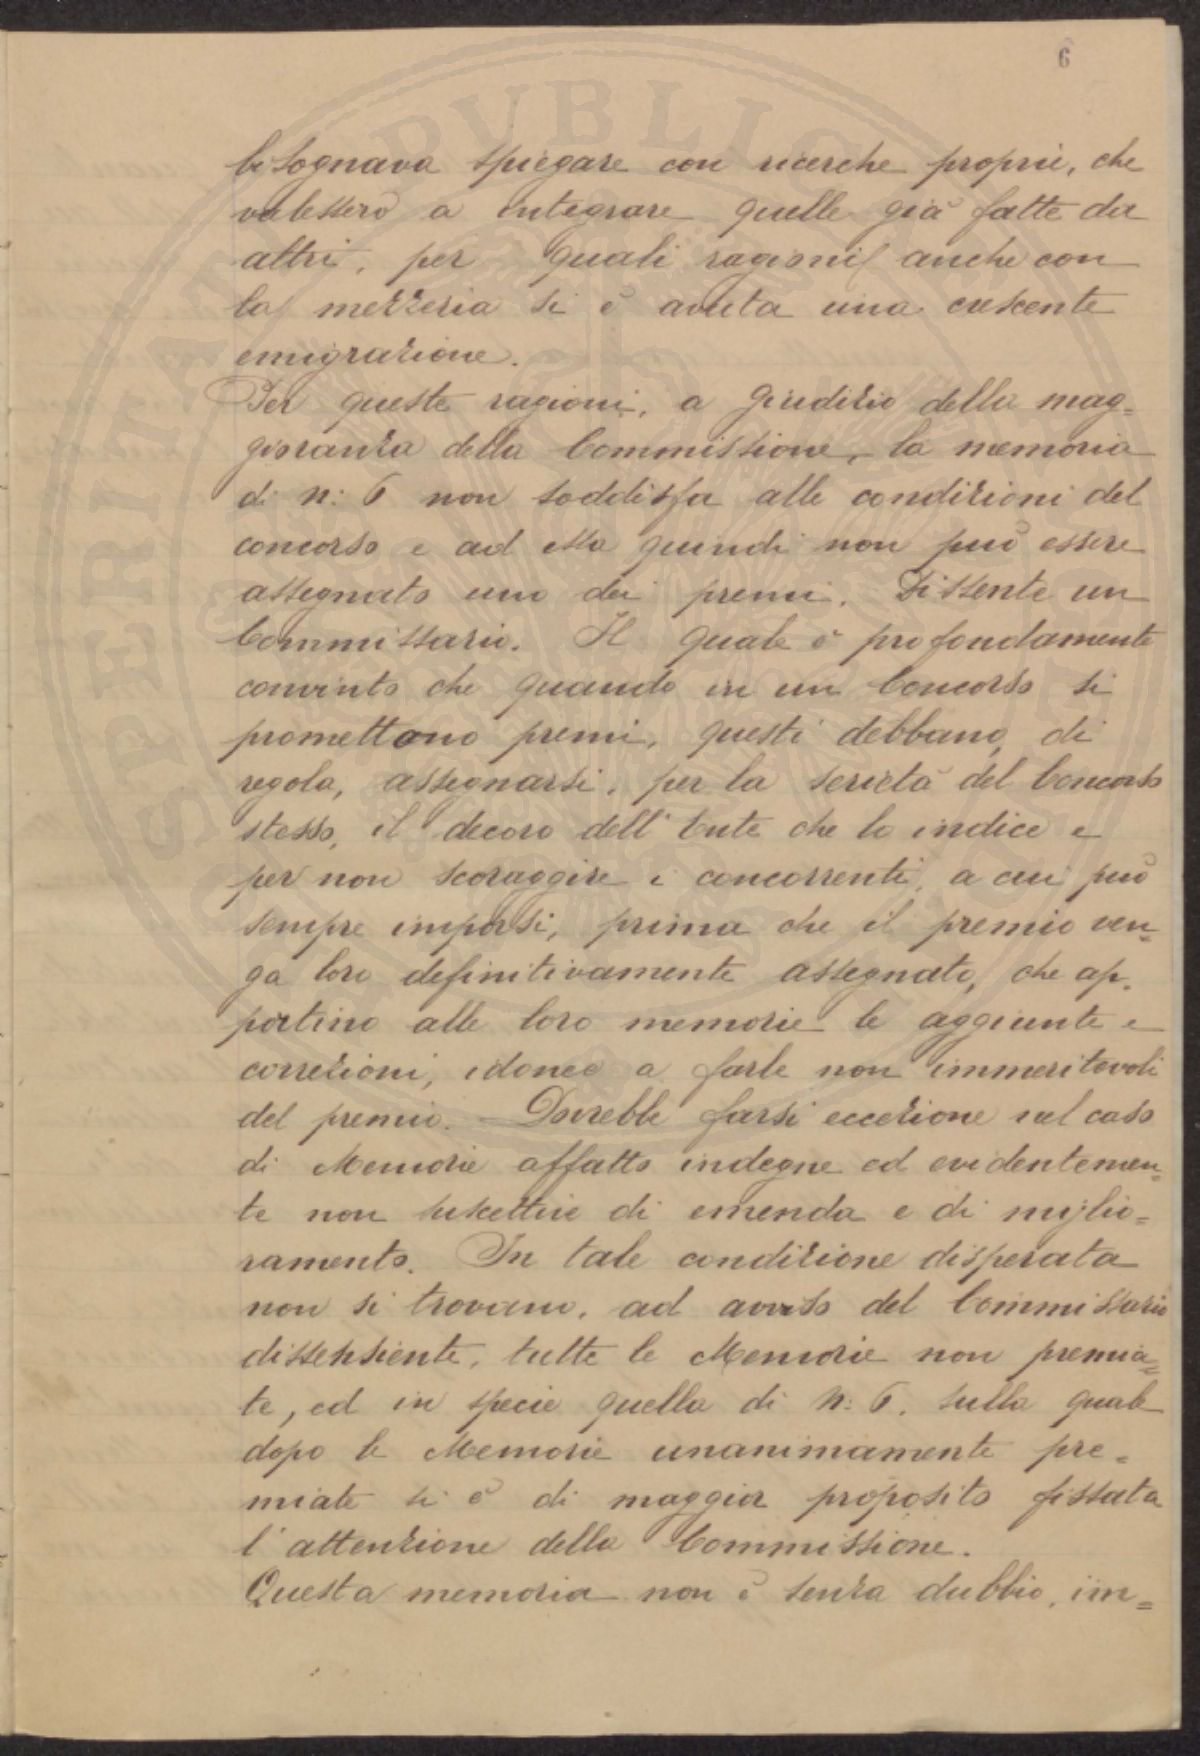 6
bisognava spiegare con ricerche proprie, che
valessero a integrare quelle già fatte da
altri, per quali ragioni anche con
la mezzeria si è avuta una crescente
emigrazione.
Per queste ragioni, a giudizio della mag=
gioranza della Commissione, la memoria
di n: 6 non soddisfa alle condizioni del
concorso e ad essa quindi non può essere
assegnato uno dei premi. Dissente un
Commissario. Il quale è profondamente
convinto che quando in un Concorso si
promettono premi, questi debbano, di
regola, assegnarsi, per la serietà del Concorso
stesso, il decoro dell'Ente che lo indice e
per non scoraggire i concorrenti, a cui può
sempre imporsi, prima che il premio ven=
ga loro definitivamente assegnato, che ap=
portino alle loro memorie le aggiunte e
correzioni, idonee a farle non immeritevoli
del premio. - Dovrebbe farsi eccezione nel caso
di Memorie affatto indegne ed evidentemen=
te non suscettive di emenda e di miglio=
ramento. In tale condizione disperata
non si trovano, ad avviso del Commissario
dissensiente, tutte le Memorie non premia=
te, ed in specie quella di N: 6, sulla quale
dopo le Memorie unanimamente pre=
miate si è di maggior proposito fissata
l'attenzione della Commissione.
Questa memoria non è senza dubbio, im=
SPERITAT PUBLIC